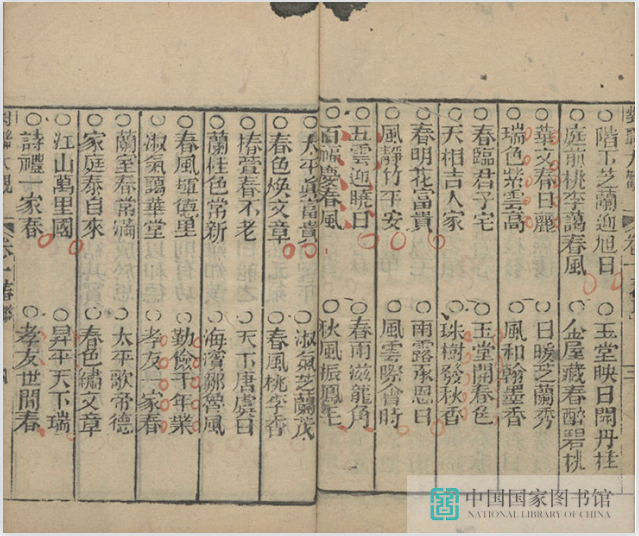 ○階下芝蘭迎旭日 ○玉堂映日開丹桂
○庭前桃李藹春風 ○金屋藏春醉碧桃
○華文春日麗 ○日暖芝蘭秀
○瑞色紫雲高 ○風和翰墨香
○春臨君子宅 ○玉堂開春色
○天相吉人家 ○珠樹發秋香
○春明花富貴 ○雨露承恩日
○風靜竹平安 ○風雲際會時
○五雲迎曉日 ○春雨滋龍角
○百福慶春風 ○秋風振鳳毛
○太平真富貴 ○淑氣芝蘭茂
○春色煥文章 ○春風桃李香
○椿萱春不老 ○天下唐虞日
○蘭桂色常新 ○海濱鄒魯風
○春風種德里 ○勤儉千年業
○淑氣藹華堂 ○孝友一家春
○蘭室春常滿 ○太平歌帝德
○家庭泰自來 ○春色繡文章
○江山萬里國 ○昇平天下瑞
○詩禮一家春 ○孝友世間春
對聯大觀 卷一 春聯 四
中国国家图书馆
NATIONAL LIBRARY OF CHINA